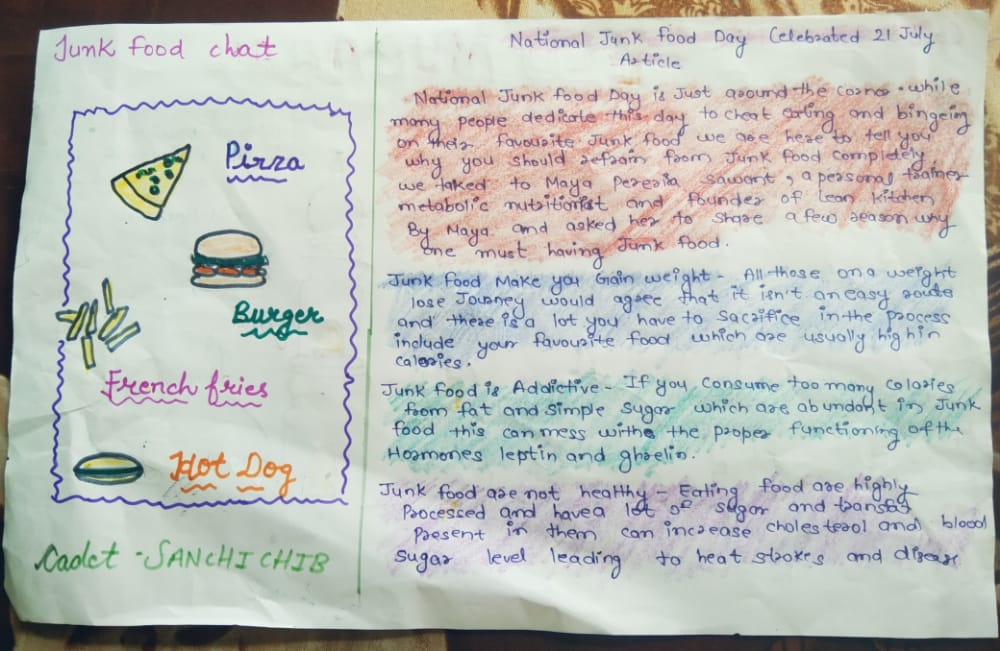 Junk food chat
Pizza
Burger
French fries
Hot Dog
Cadet - SANCHI CHIB
National Junk Food Day Celebrated 21 July
Article
National Junk food Day is Just around the corner. while
many people dedicate this day to cheat eating and bingeing
on their favourite Junk food we are here to tell you
why you should refrain from Junk food completely
we taked to Maya Pereria sawant, a personal trainer
metabolic nutritionist and founder of Lean Kitchen
By Maya and asked her to share a few reason why
one must having Junk food.
Junk food Make you Gain weight - All those on a weight
lose Journey would agree that it isn't an easy route
and there is a lot you have to sacrifice in the process
include your favourite food which are usually high in
calories.
Junk food is Addictive - If you consume too many calories
from fat and simple sugar which are abundant in Junk
food this can mess withe the proper functioning of the
Hormones leptin and ghrelin.
Junk food are not healthy - Eating food are highly
Processed and have a lot of sugar and transfat
Present in them can increase cholesterol and blood
sugar level leading to heat strokes and disease